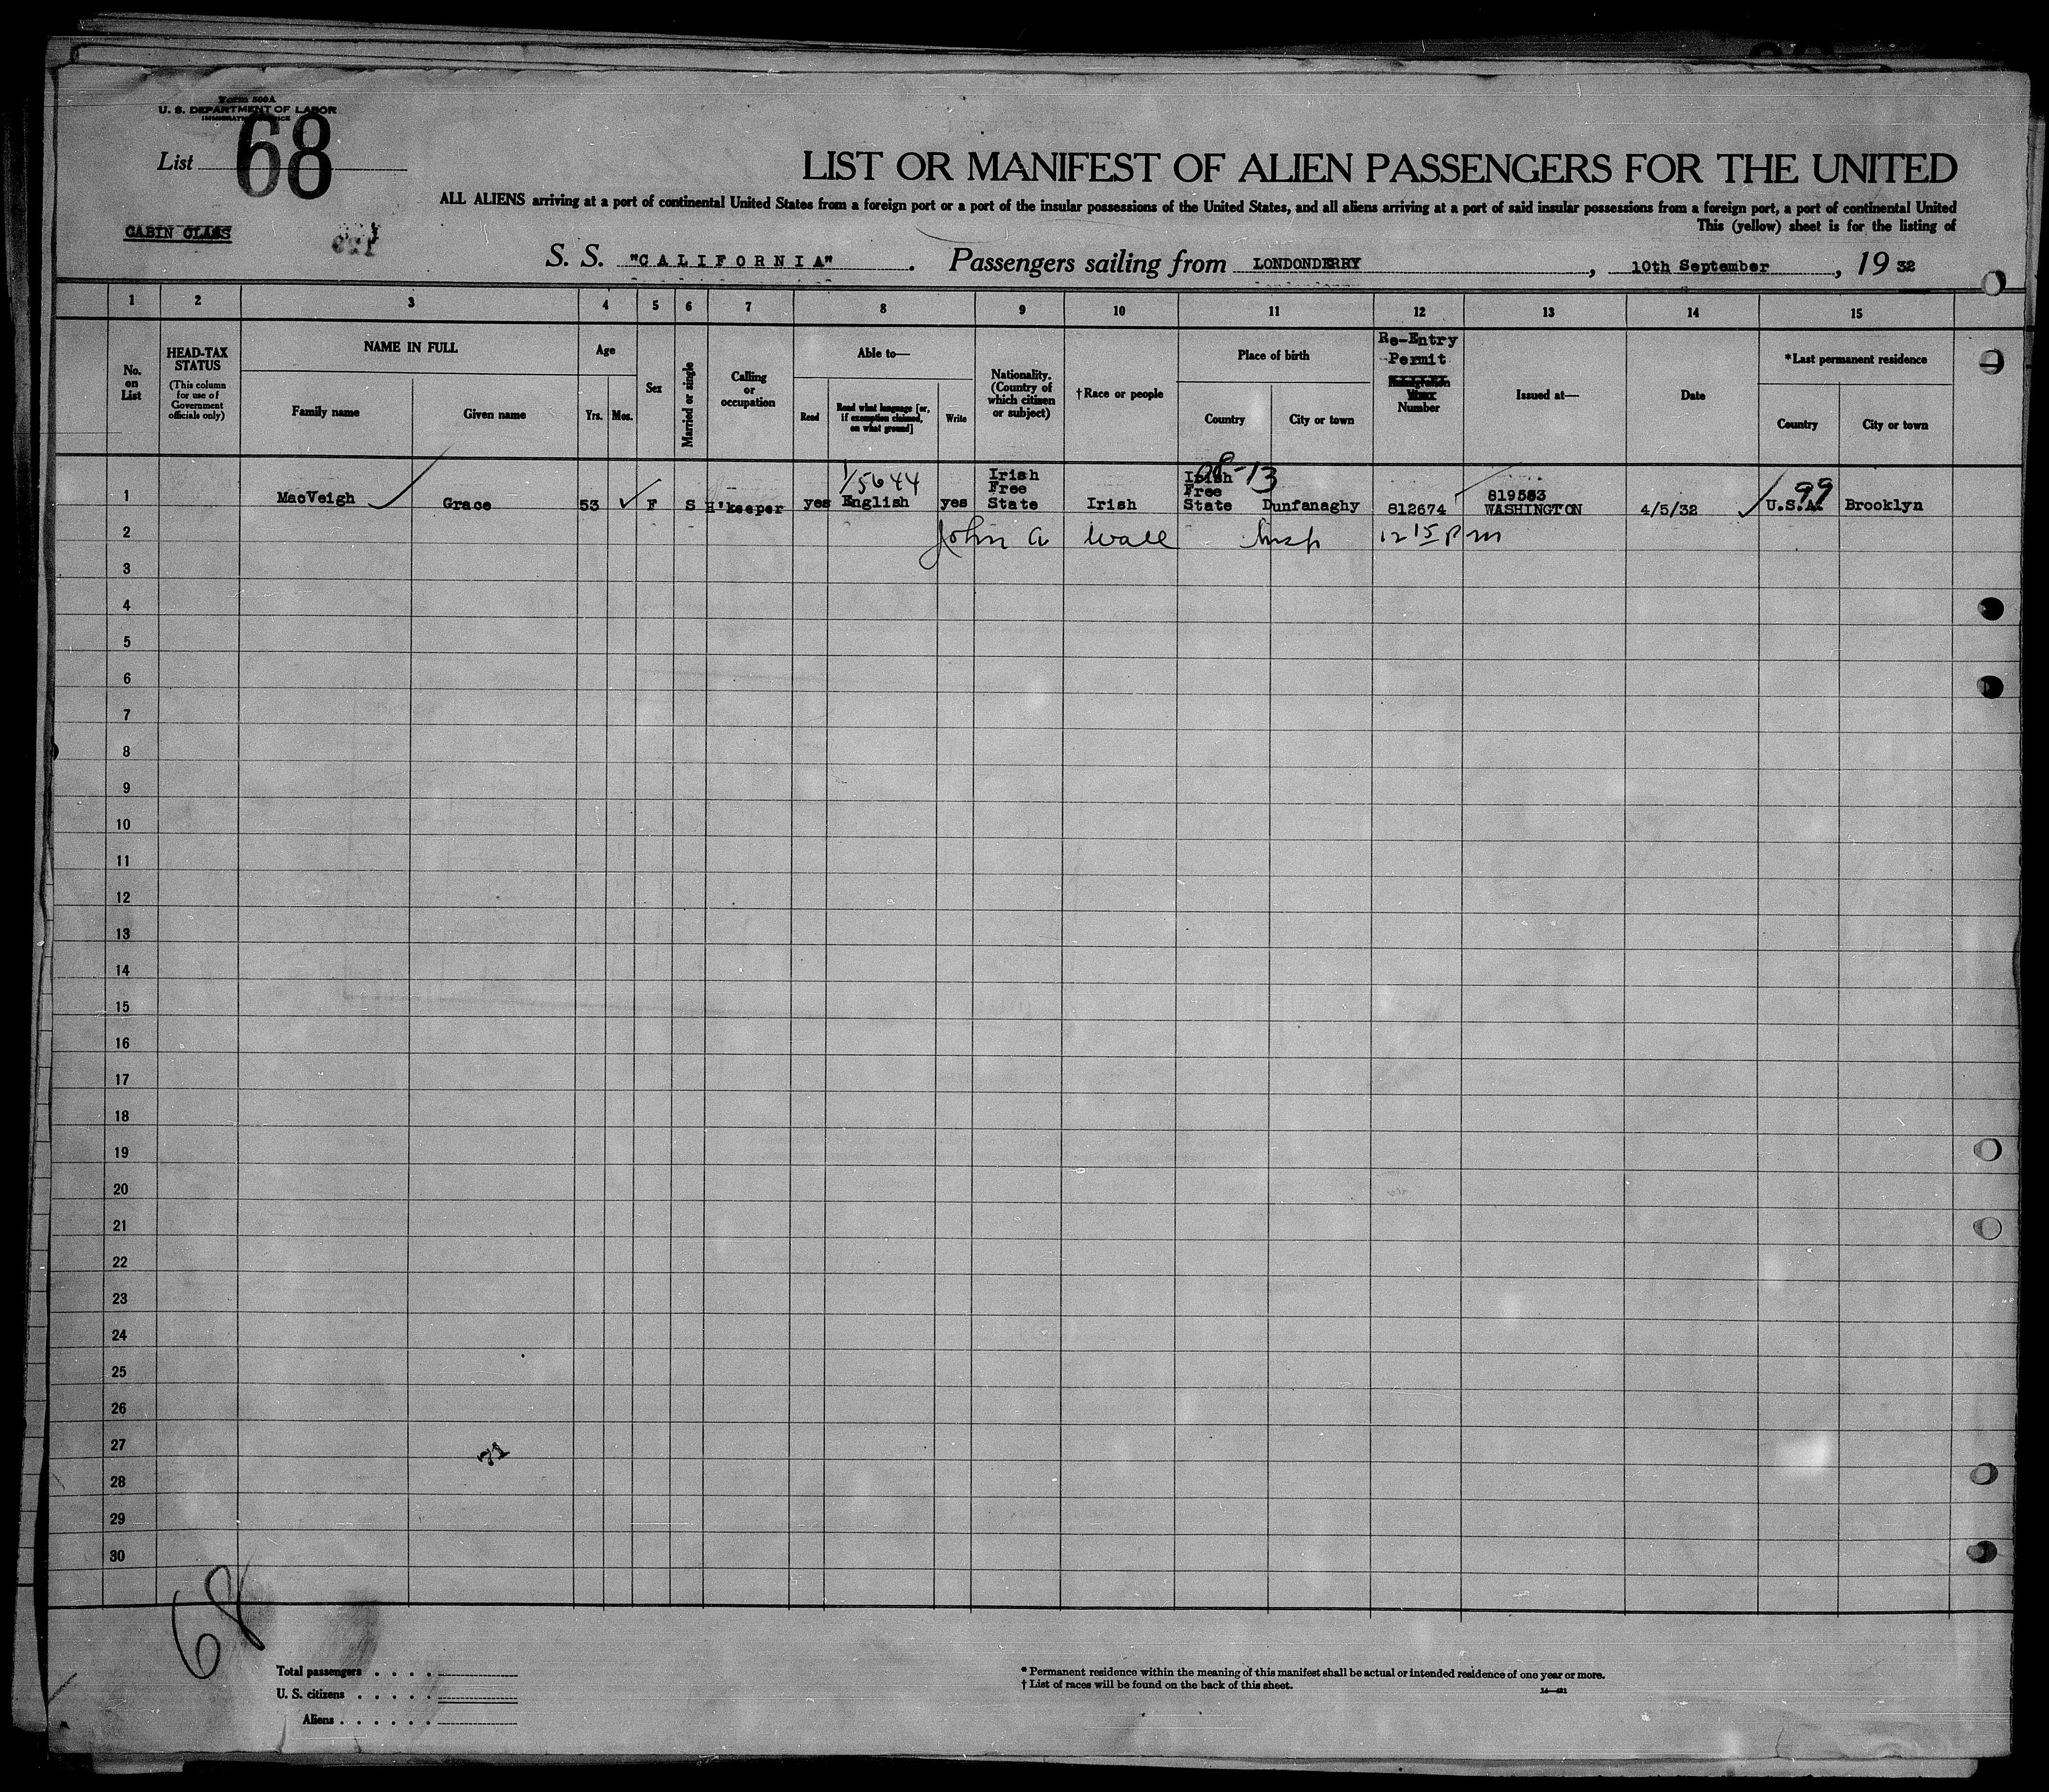 Form 500A
U. S. DEPARTMENT OF LABOR
List 68
LIST OR MANIFEST OF ALIEN PASSENGERS FOR THE UNITED
ALL ALIENS arriving at a port of continental United States from a foreign port or a port of the insular possessions of the United States, and all aliens arriving at a port of said insular possessions from a foreign port, a port of continental United
This (yellow) sheet is for the listing of
CABIN CLASS
S. S. "CALIFORNIA". Passengers sailing from LONDONDERRY, 10th September, 19 32
1 2 3 4 5 6 7 8 9 10 11 12 13 14 15
No. on List
HEAD-TAX STATUS (This column for use of Government officials only)
NAME IN FULL
Family name Given name
Age
Yrs. Mos.
Sex
Married or single
Calling or occupation
Able to—
Read Read what language [or, if exemption claimed, on what ground] Write
Nationality. (Country of which citizen or subject)
†Race or people
Place of birth
Country City or town
Re-Entry Permit Number
Issued at—
Date
*Last permanent residence
Country City or town
1 MacVeigh Grace 53 F S H'keeper yes English yes Irish Free State Irish Irish Free State Dunfanaghy 812674 WASHINGTON 4/5/32 U.S.A. Brooklyn
1/5644
99
2 John A Wall Insp 12 15 P m
3
4
5
6
7
8
9
10
11
12
13
14
15
16
17
18
19
20
21
22
23
24
25
26
27
71
28
29
30
68
Total passengers . . . .
U. S. citizens . . . . .
Aliens . . . . . .
* Permanent residence within the meaning of this manifest shall be actual or intended residence of one year or more.
† List of races will be found on the back of this sheet.